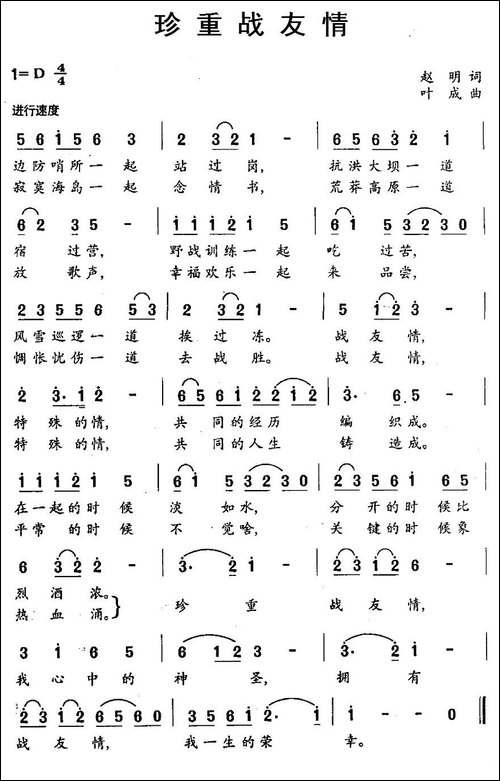 珍重战友情
1=D 4/4
赵 明 词
叶 成 曲
进行速度
5 6 1 5 6 3 | 2 3 2 1 - | 6 5 6 3 5 2 | 3 2 1 -
边防哨所一起 站过岗, 抗洪大坝一道
寂寞海岛一起 念情书, 荒莽高原一道
6 2 3 5 - | 1 1 1 2 1 5 | 6 1 5 3 2 3 0
宿 过营, 野战训练一起 吃 过苦,
放 歌声, 幸福欢乐一起 来 品尝,
2 3 5 5 6 5 3 | 2 3 2 1 - | 5 1 2 2 -
风雪巡逻一道 挨过冻。 战友情,
惆怅忧伤一道 去战胜。 战友情,
2 3· 1 2 - | 6 5 6 1 2 2 1 2 | 3· 6 5 -
特殊的情, 共同的经历 编织成。
特殊的情, 共同的人生 铸造成。
1 1 1 2 1 5 | 6 1 5 3 2 3 0 | 2 3 1 2 1 6 5
在一起的时候 淡如水, 分开的时候比
平常的时候 不觉啥, 关键的时候象
6 3 2 2 - | 3· 2 1 - | 2 3 1 2 1 -
烈酒浓。
热血涌。 } 珍重 战友情,
3 1 6 5 | 6 1 2 2 - | 3· 2 1 -
我心中的神圣, 拥有
2 3 1 2 6 5 6 0 | 3 5 6 1 2· 1 | 1 - - 0
战友情, 我一生的荣 幸。